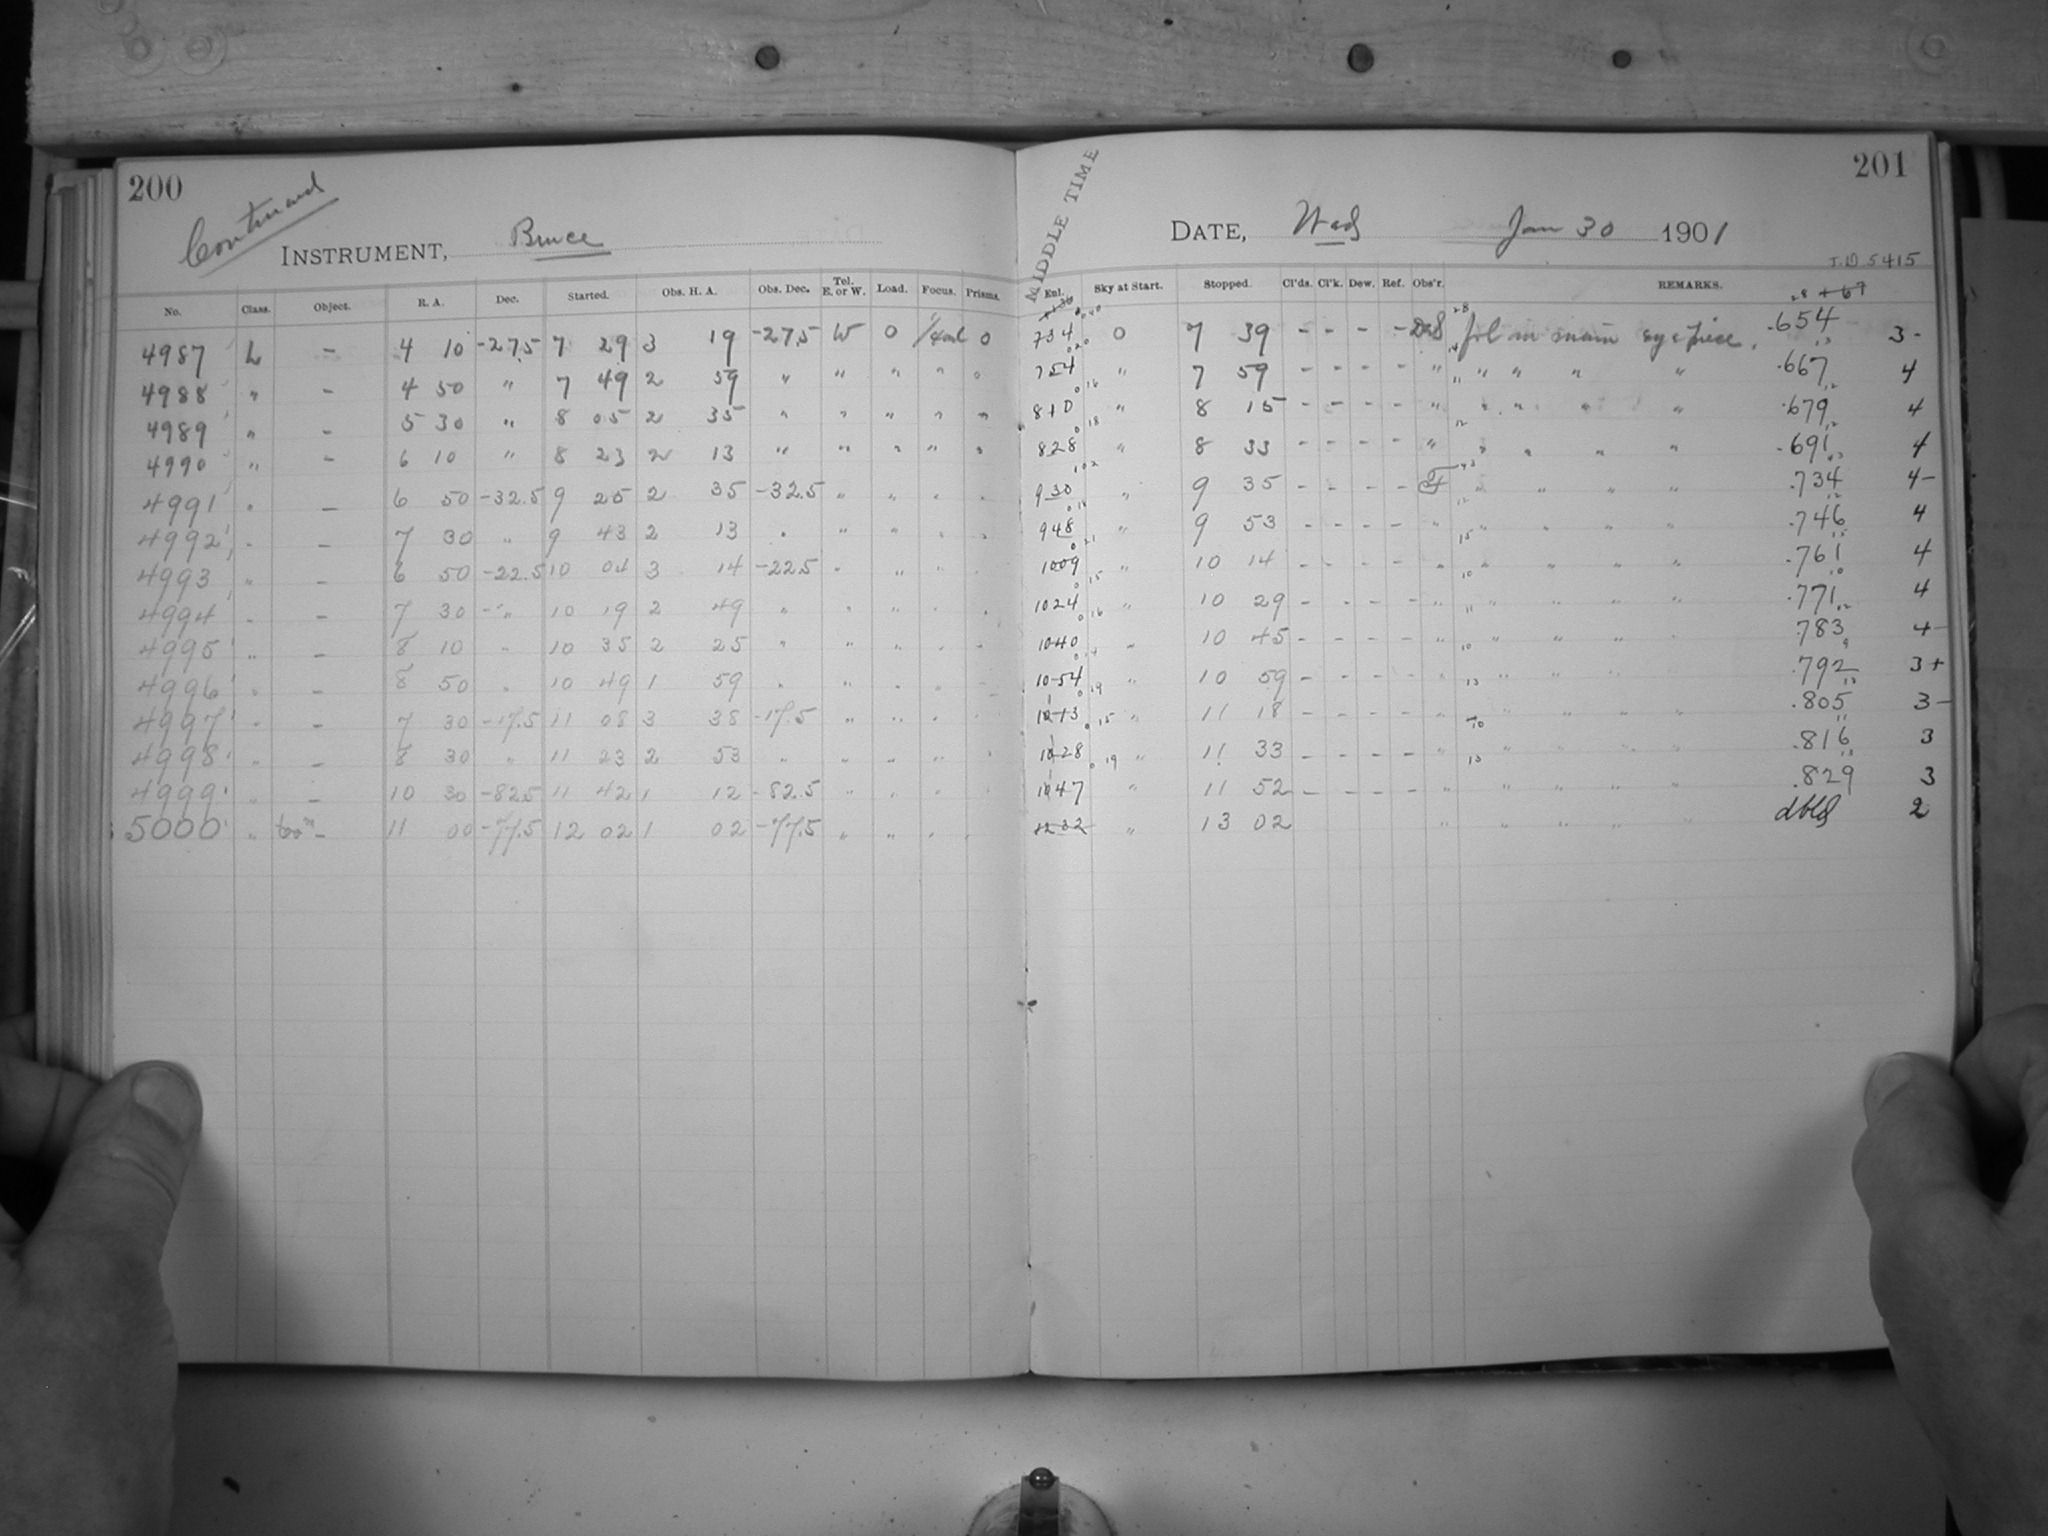 200
Continued
INSTRUMENT, Bruce
No. Class. Object. R. A. Dec. Started. Obs. H. A. Obs. Dec. Tel. E. or W. Load. Focus. Prisms.
4987 L - 4 10 -27.5 7 29 3 19 -27.5 W 0 0
4988 " - 4 50 " 7 49 2 59 " " " " "
4989 " - 5 30 " 8 05 2 35 " " " " "
4990 " - 6 10 " 8 23 2 13 " " " " "
4991 " - 6 50 -32.5 9 25 2 35 -32.5 " " " "
4992 " - 7 30 " 9 43 2 13 " " " " "
4993 " - 6 50 -22.5 10 04 3 14 -22.5 " " " "
4994 " - 7 30 " 10 19 2 49 " " " " "
4995 " - 8 10 " 10 35 2 25 " " " " "
4996 " - 8 50 " 10 49 1 59 " " " " "
4997 " - 7 30 -17.5 11 08 3 38 -17.5 " " " "
4998 " - 8 30 " 11 23 2 53 " " " " "
4999 " - 10 30 -82.5 11 42 1 12 -82.5 " " " "
5000 " 60m - 11 00 -77.5 12 02 1 02 -77.5 " " " "
201
MIDDLE TIME
DATE, Wed Jan 30 1901
J.D 5415
Enl. Sky at Start. Stopped. Cl'ds. Cl'k. Dew. Ref. Obs'r. REMARKS.
734 0 7 39 - - - - fol in main eyepiece. .654 3-
754 " 7 59 - - - - " " " " " .667 4
810 " 8 15 - - - - " " " " " .679 4
828 " 8 33 - - - - " " " " " .691 4
930 " 9 35 - - - - " " " " .734 4-
948 " 9 53 - - - - " " " " " .746 4
1009 " 10 14 - - - - " " " " " .761 4
1024 " 10 29 - - - - " " " " " .771 4
1040 " 10 45 - - - - " " " " " .783 4-
1054 " 10 59 - - - - " " " " " .792 3+
1113 " 11 18 - - - - " " " " " .805 3-
1128 " 11 33 - - - - " " " " " .816 3
1147 " 11 52 - - - - " " " " " .829 3
1232 " 13 02 " " " " " dbld 2